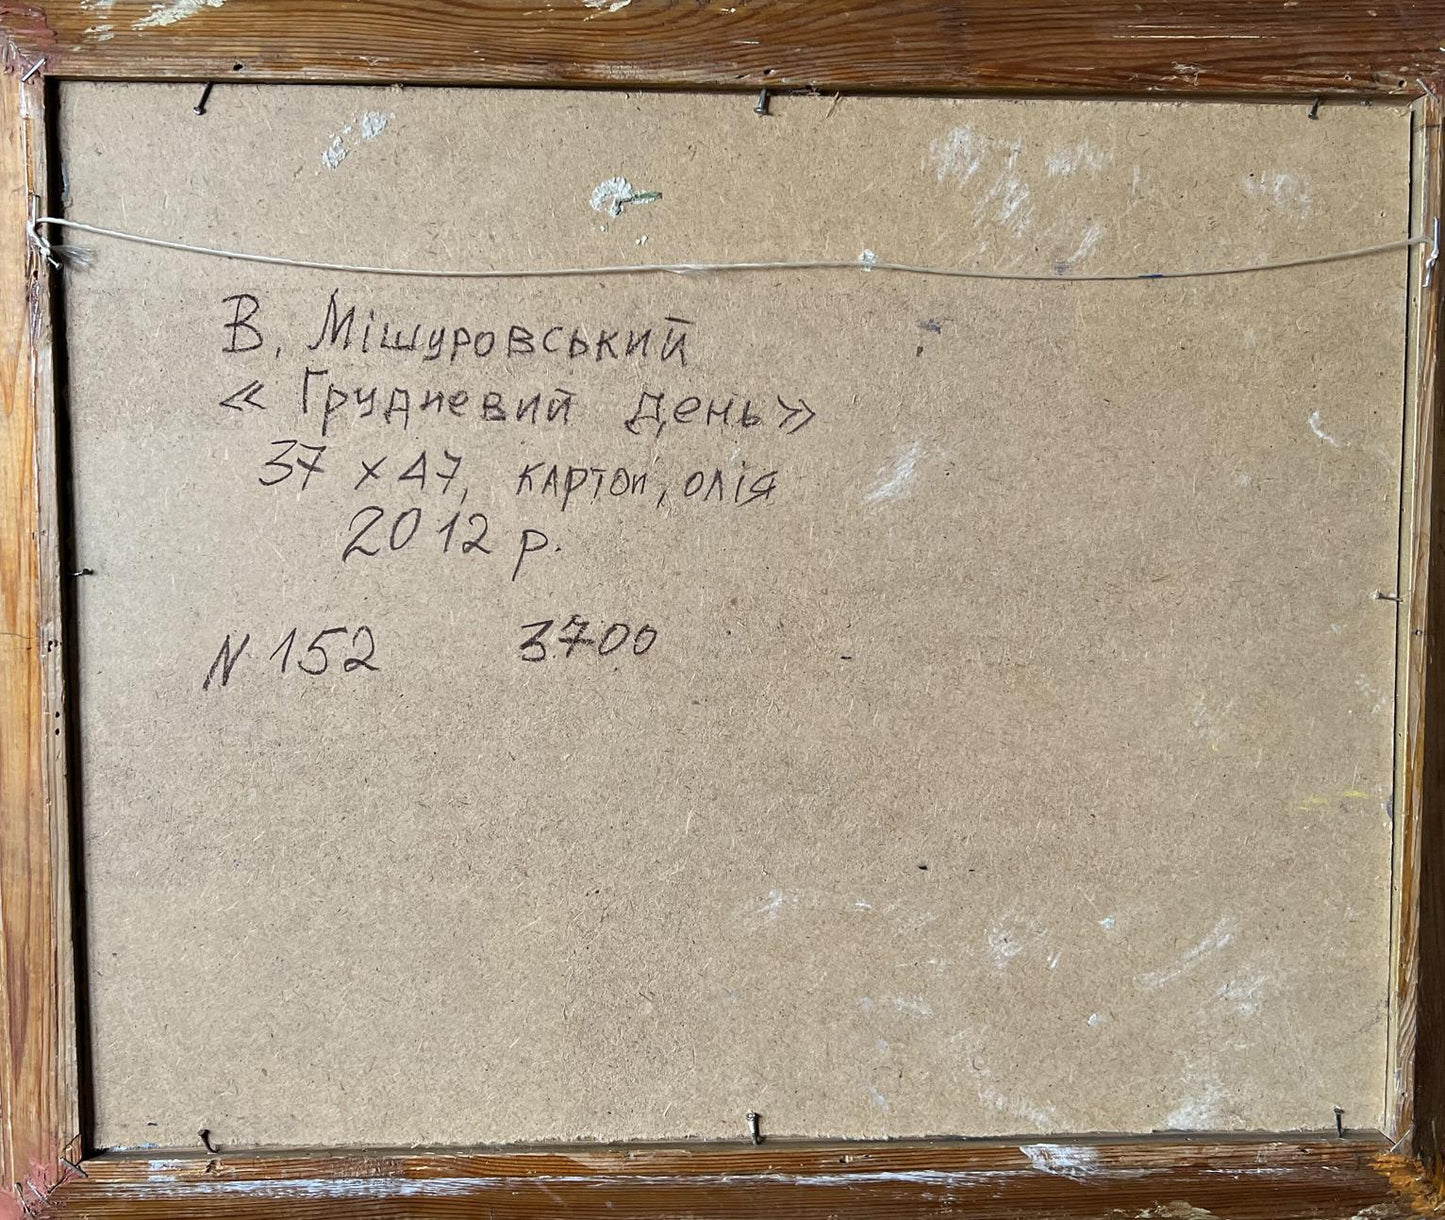 В. Мішуровський
« Грудневий день»
37 x 47, картон, олія
2012 р.
N 152 3700